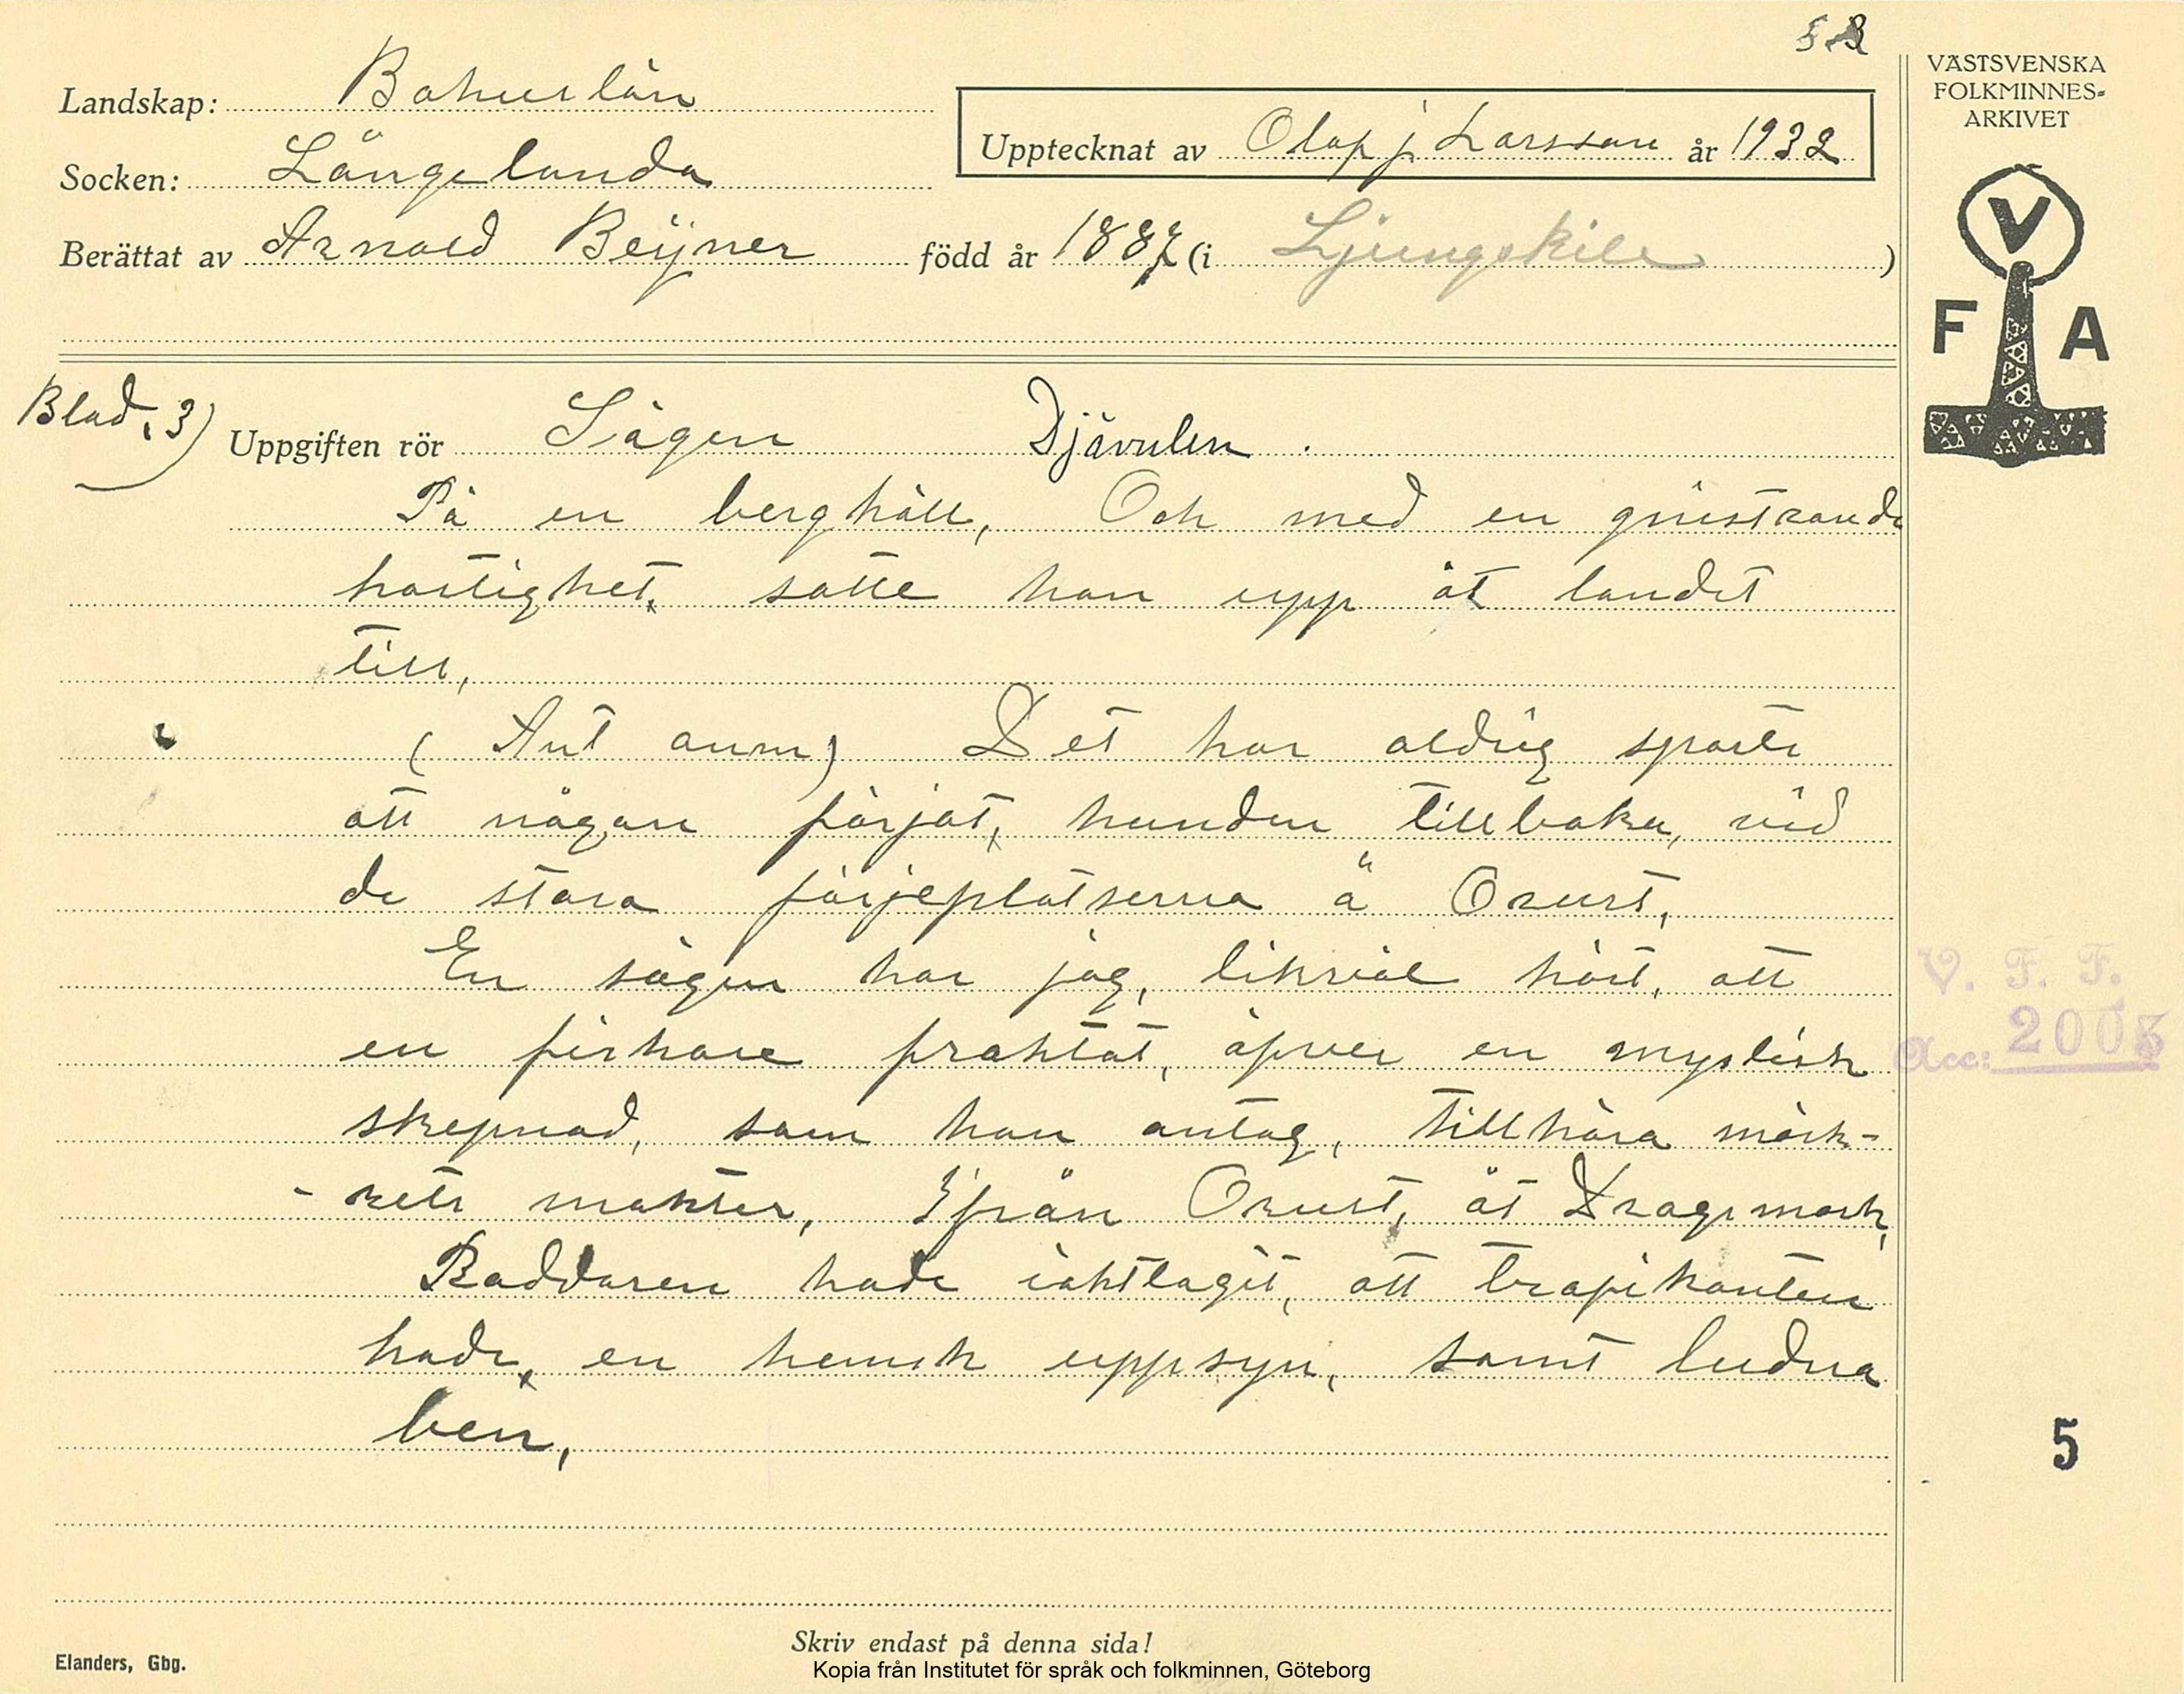 VÄSTSVENSKA
FOLKMINNES-
ARKIVET
Landskap: Bohuslän
Upptecknat av Olof j Larsson år 1932
Socken: Långelanda
Berättat av Arnold Beijner född år 1887 (i Ljungskile)
V
F A
Blad, 3) Uppgiften rör Sägen Djävulen.
På en berghäll, Och med en gnistrande
hastighet, satte han upp åt landet
till,
(Ant anm) Det har aldrig sports
att någon färjat, hunden tillbaka, vid
de stora färjeplatserna å Orust,
En sägen har jag, likväl hört, att
en fiskare fraktat, öfver en mystisk
skepnad, som han antog, tillhöra mörk-
- rets makter, Ifrån Orust, åt Dragsmark,
Roddaren hade iakttagit, att trafikanten
hade, en hemsk uppsyn, samt ludna
ben,
V. F. F.
Acc: 2003
5
Skriv endast på denna sida!
Elanders, Gbg.
Kopia från Institutet för språk och folkminnen, Göteborg